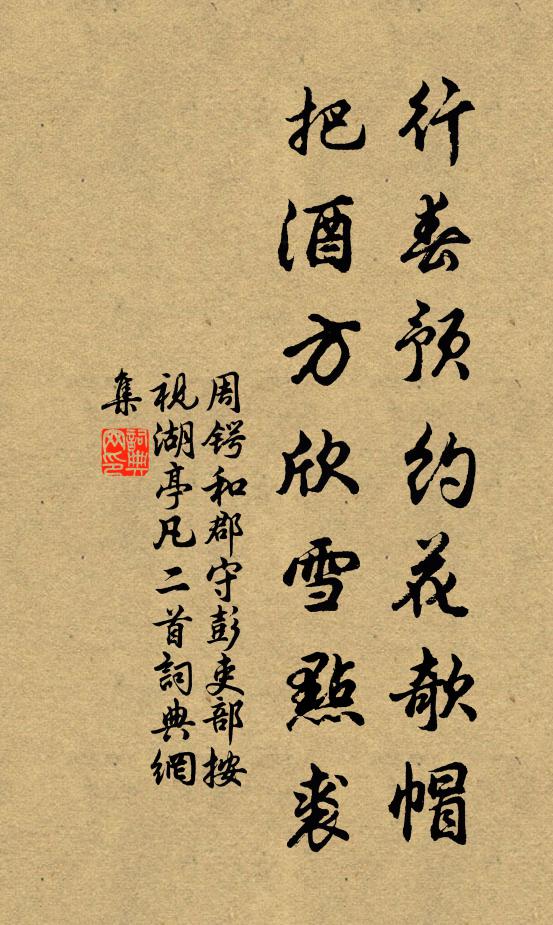 行春預約花欹帽
把酒方欣雪點裘
周鍔和郡守彭吏部按
視湖亭凡二首詞典網
集
詞典
网印